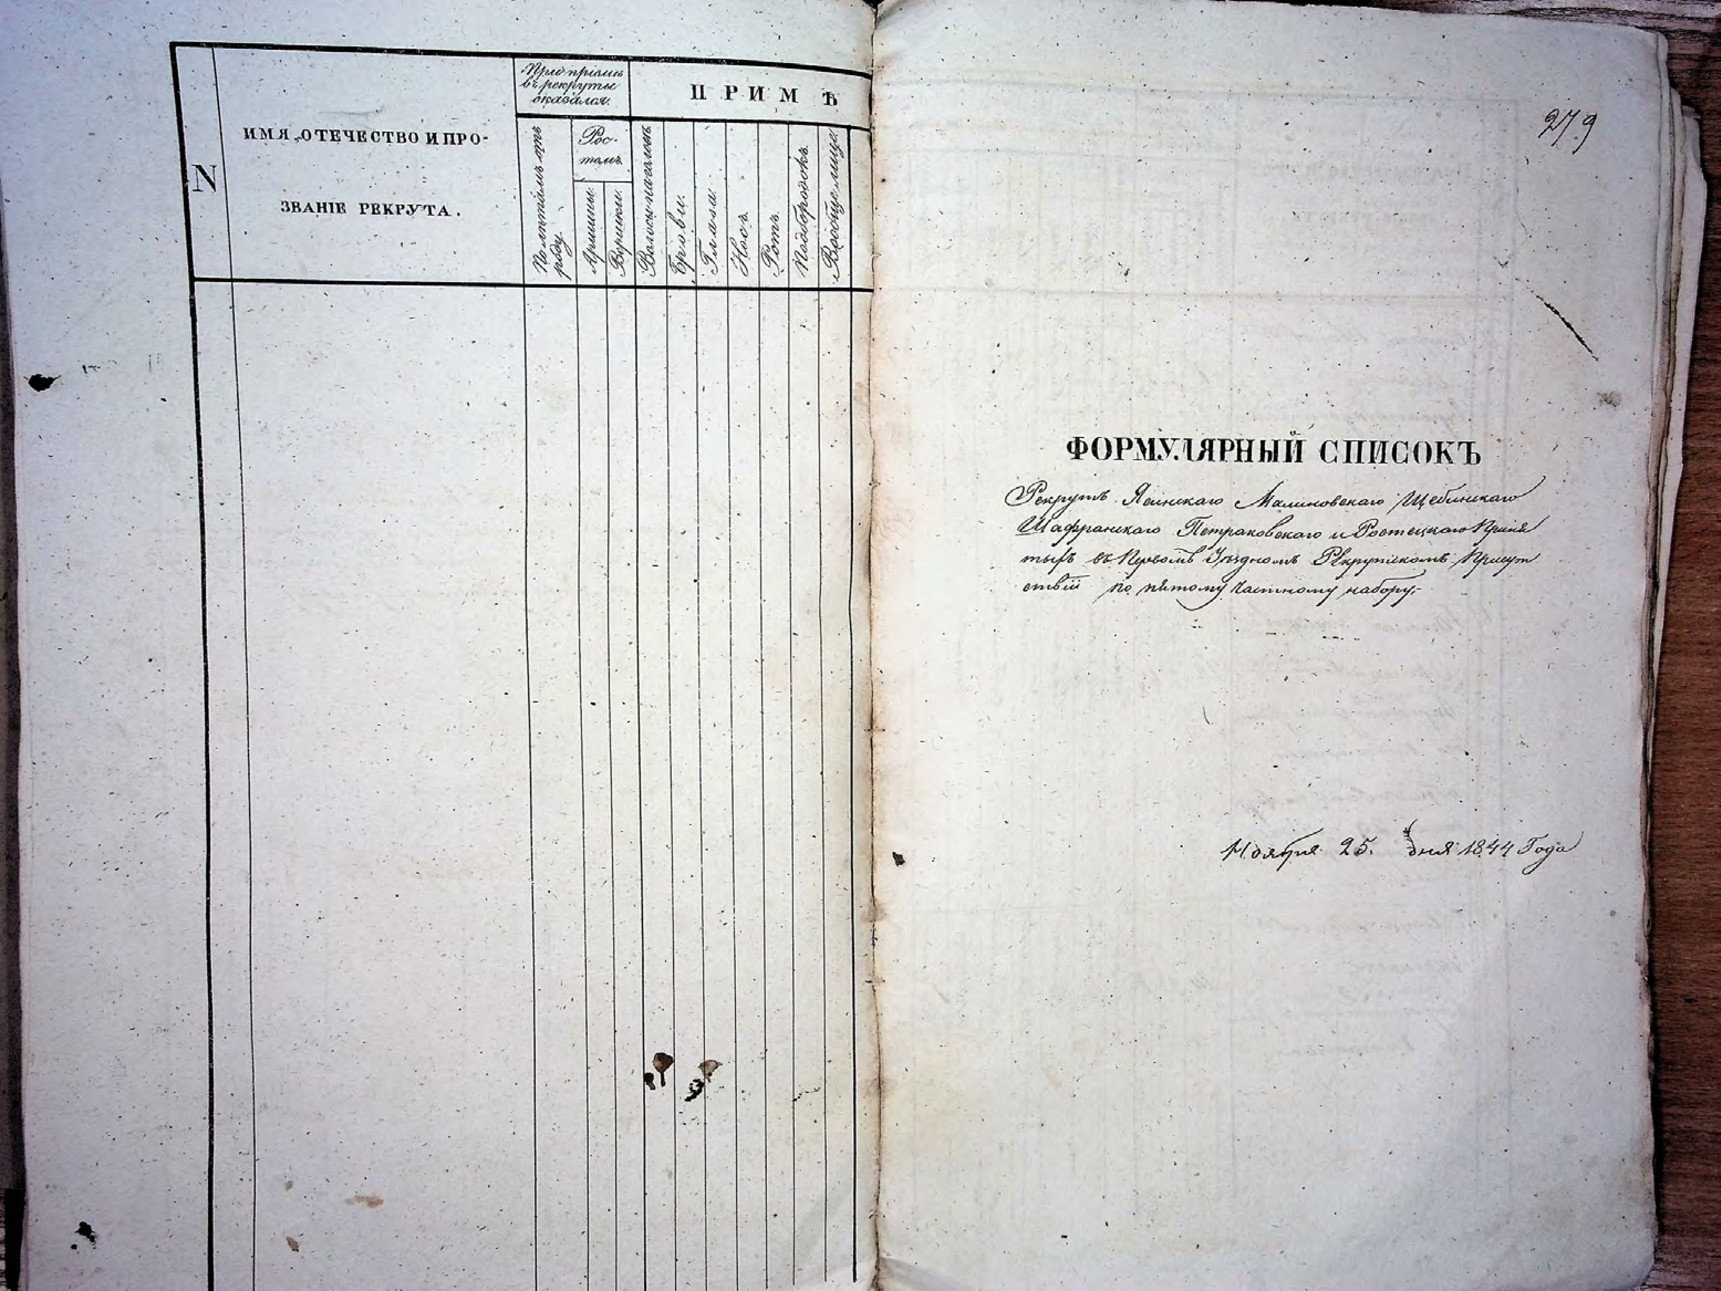 N
ИМЯ, ОТЕЧЕСТВО И ПРО-
ЗВАНІЕ РЕКРУТА.
При пріемѣ
въ рекруты
оказался.
По лѣтамъ отъ
роду.
Рос-
томъ.
Аршины.
Вершки.
ПРИМѢ
Волосы на головѣ
Брови.
Глаза.
Носъ.
Ротъ.
Подбородокъ.
Вообще лице.
279
ФОРМУЛЯРНЫЙ СПИСОКЪ
Рекрутъ Ясинскаго Малиновскаго Щебинскаго
Шафранскаго Петраковскаго и Ростецкаго Приня
тыхъ въ Первомъ Уѣздномъ Рекрутскомъ Присут
ствіи по пятому частному набору,-
Ноября 25. дня 1844 Года